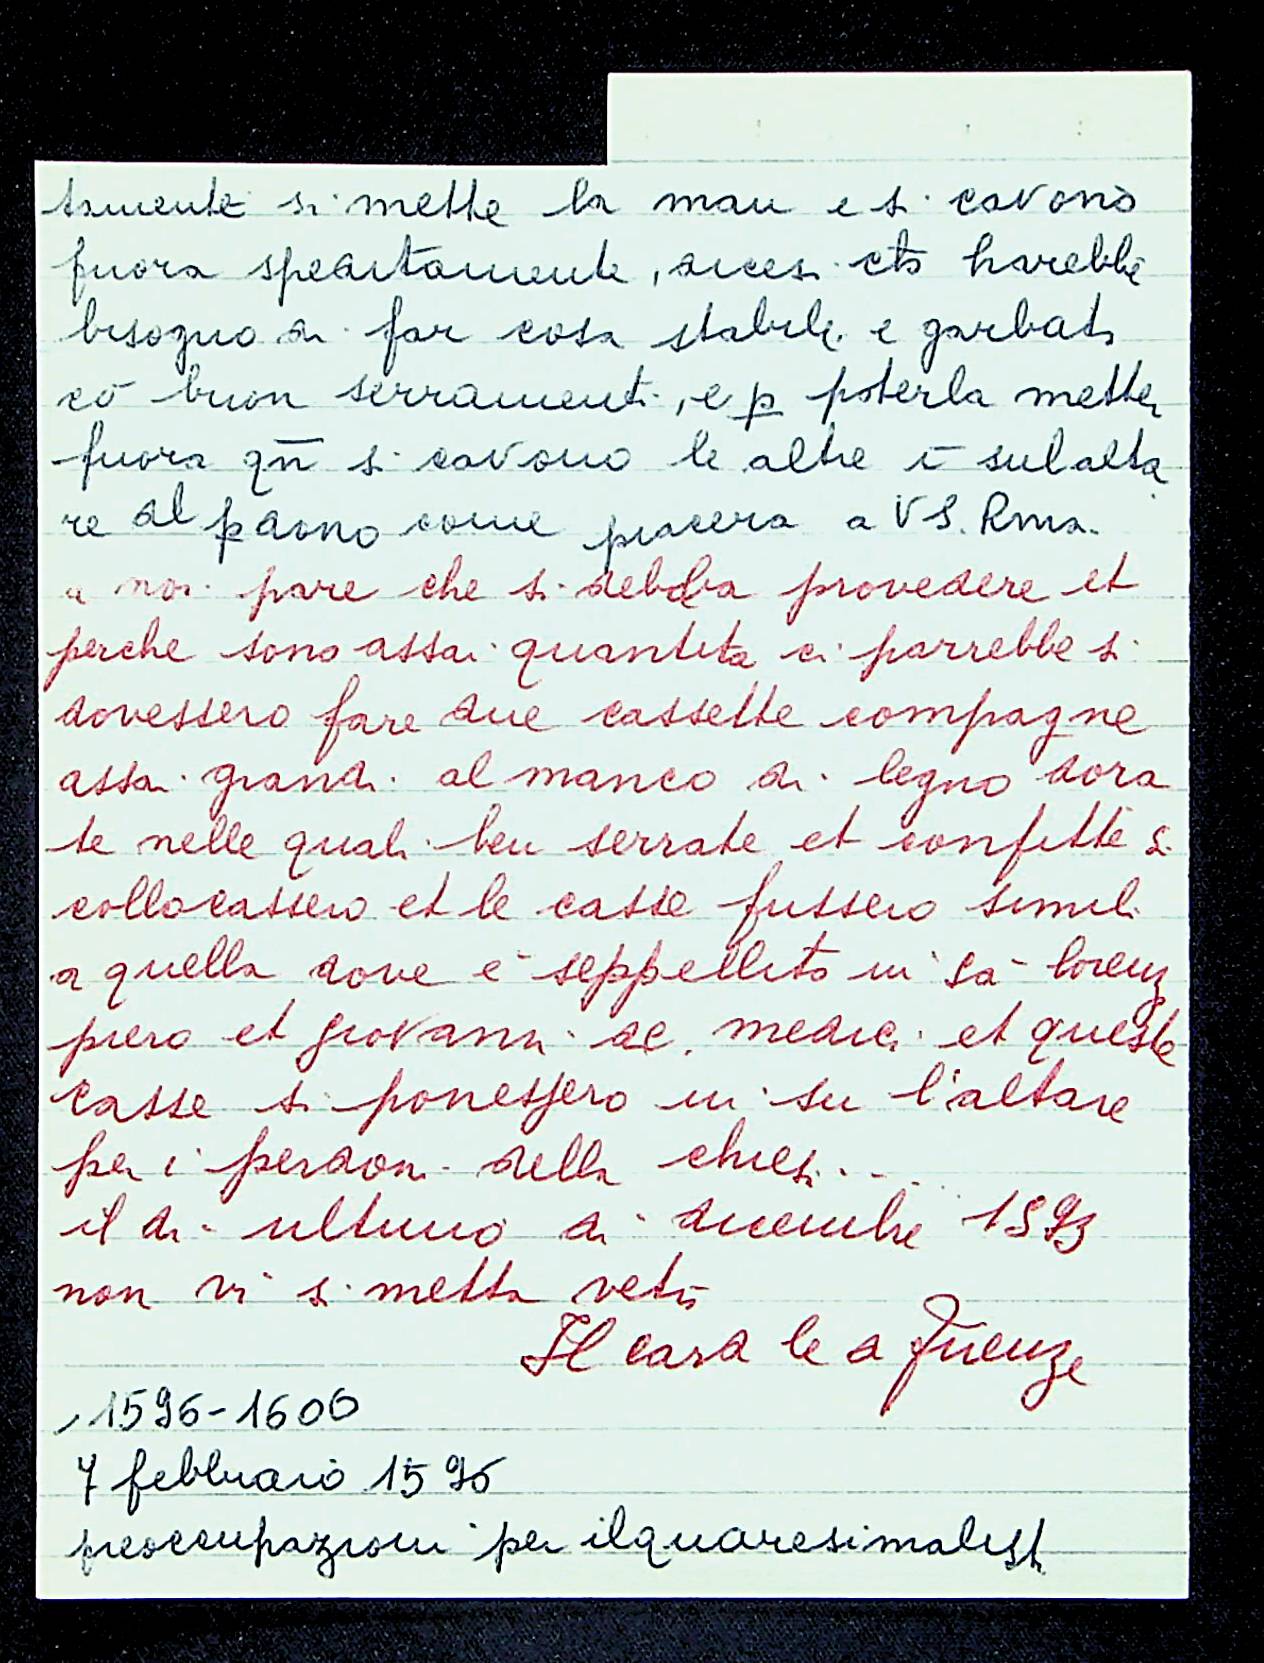 tamente si mette la man e si cavono
fuora speditamente, dicesi cto harebbe
bisogno di far cosa stabile e garbata
cō buon serramenti, e p poterla metter
fuora qn̄ si cavono le altre ī sul alta
re al pdono come piacera a VS. Rma.
a noi pare che si debba provedere et
perche sono assai quantita ci parrebbe si
dovessero fare due cassette compagne
assai grandi al manco di legno dora
te nelle quali ben serrate et confitte si
collocassero et le casse fussero simili
a quella dove e seppellito in sā lorenz
piero et giovanni de medici et queste
casse si ponessero in su l'altare
per i perdoni della chiesa...
il di ultimo di dicembre 1593
non vi si metta
Il card le a firenze
1596-1600
7 febbraio 1596
preoccupazioni per il quaresimalista